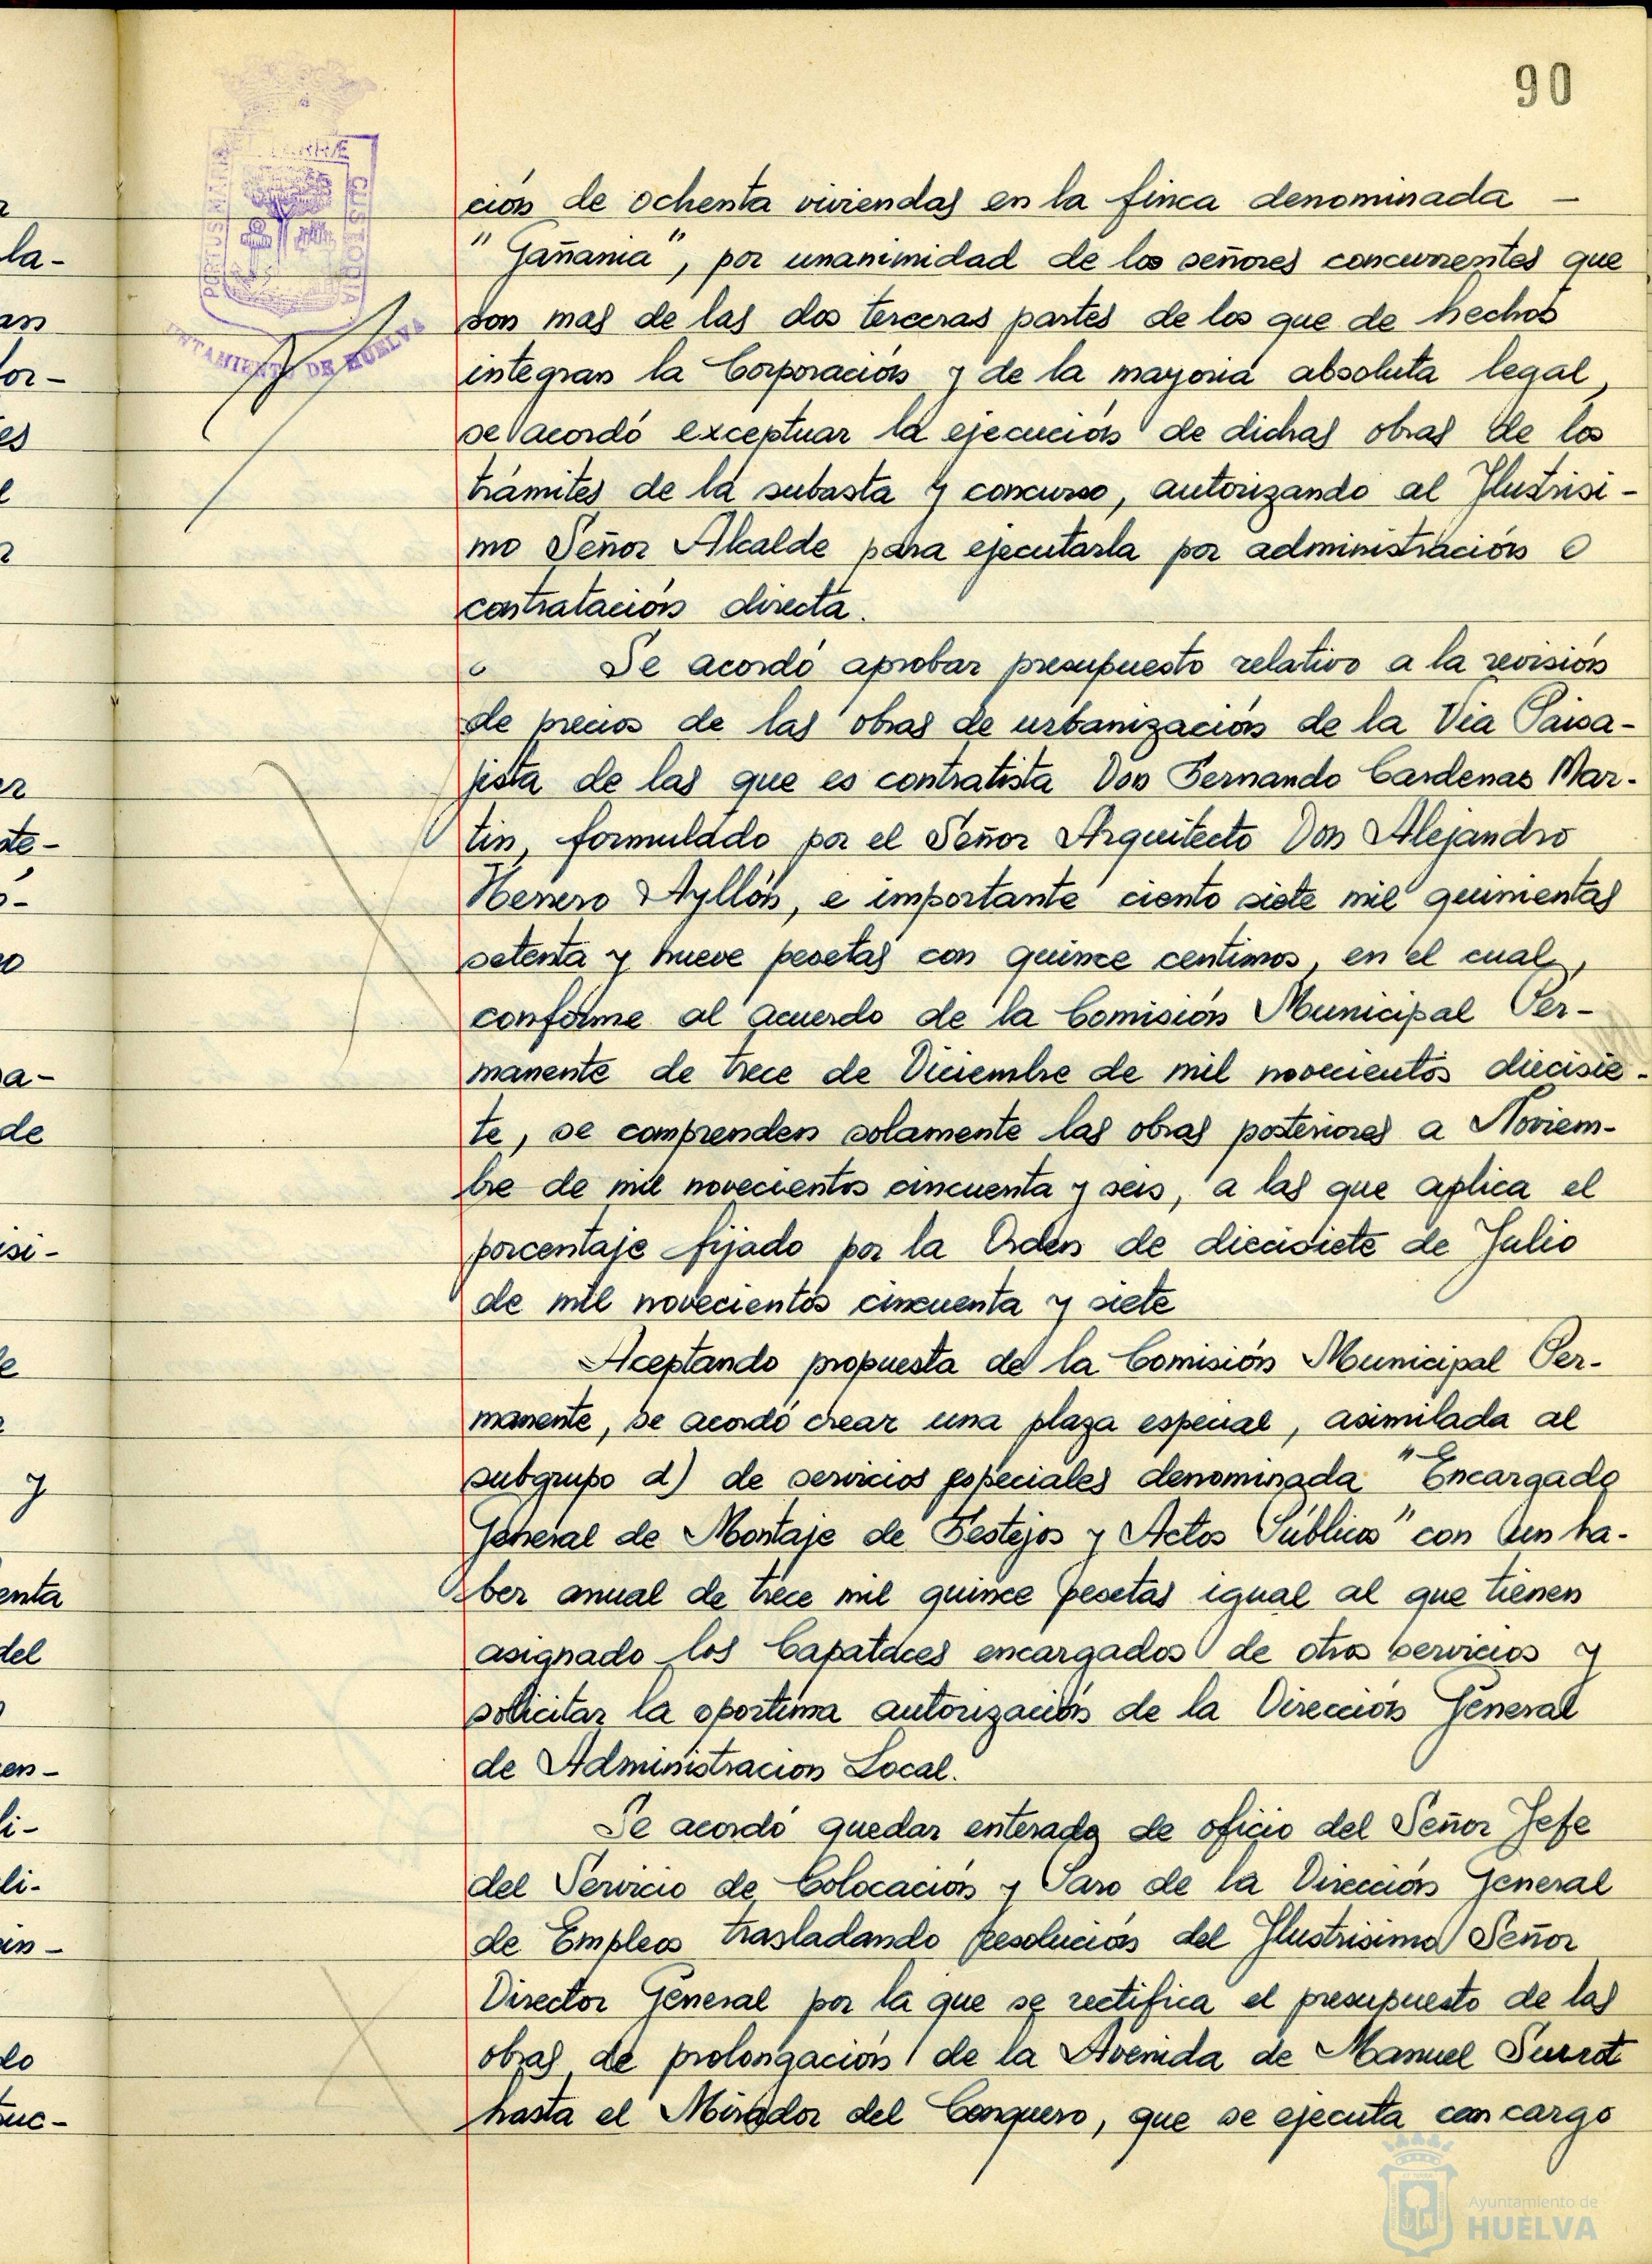 90
ción de ochenta viviendas en la finca denominada -
"Gañania", por unanimidad de los señores concurrentes que
son mas de las dos terceras partes de los que de hechos
integran la Corporación y de la mayoria absoluta legal,
se acordó exceptuar la ejecución de dichas obras de los
trámites de la subasta y concurso, autorizando al Ilustrisi-
mo Señor Alcalde para ejecutarla por administración o
contratación directa.
Se acordó aprobar presupuesto relativo a la revisión
de precios de las obras de urbanización de la Via Paisa-
jista de las que es contratista Don Fernando Cardenas Mar-
tin, formulado por el Señor Arquitecto Don Alejandro
Herrero Ayllón, e importante ciento siete mil quinientas
setenta y nueve pesetas con quince centimos, en el cual,
conforme al acuerdo de la Comisión Municipal Per-
manente de trece de Diciembre de mil novecientos diecisie-
te, se comprenden solamente las obras posteriores a Noviem-
bre de mil novecientos cincuenta y seis, a las que aplica el
porcentaje fijado por la Orden de diecisiete de Julio
de mil novecientos cincuenta y siete
Aceptando propuesta de la Comisión Municipal Per-
manente, se acordó crear una plaza especial, asimilada al
subgrupo d) de servicios especiales denominada "Encargado
General de Montaje de Festejos y Actos Públicos" con un ha-
ber anual de trece mil quince pesetas igual al que tienen
asignado los Capataces encargados de otros servicios y
solicitar la oportuna autorización de la Dirección General
de Administracion Local.
Se acordó quedar enterada de oficio del Señor Jefe
del Servicio de Colocación y Paro de la Dirección General
de Empleos trasladando resolución del Ilustrisimo Señor
Director General por la que se rectifica el presupuesto de las
obras de prolongación de la Avenida de Manuel Surrot
hasta el Mirador del Conquero, que se ejecuta con cargo
PORTUS MARIS ET TERRAE CUSTODIA
AYUNTAMIENTO DE HUELVA
la-
or-
es
te-
a-
de
isi-
y
enta
del
en-
li-
li-
do
uc-
Ayuntamiento de
HUELVA